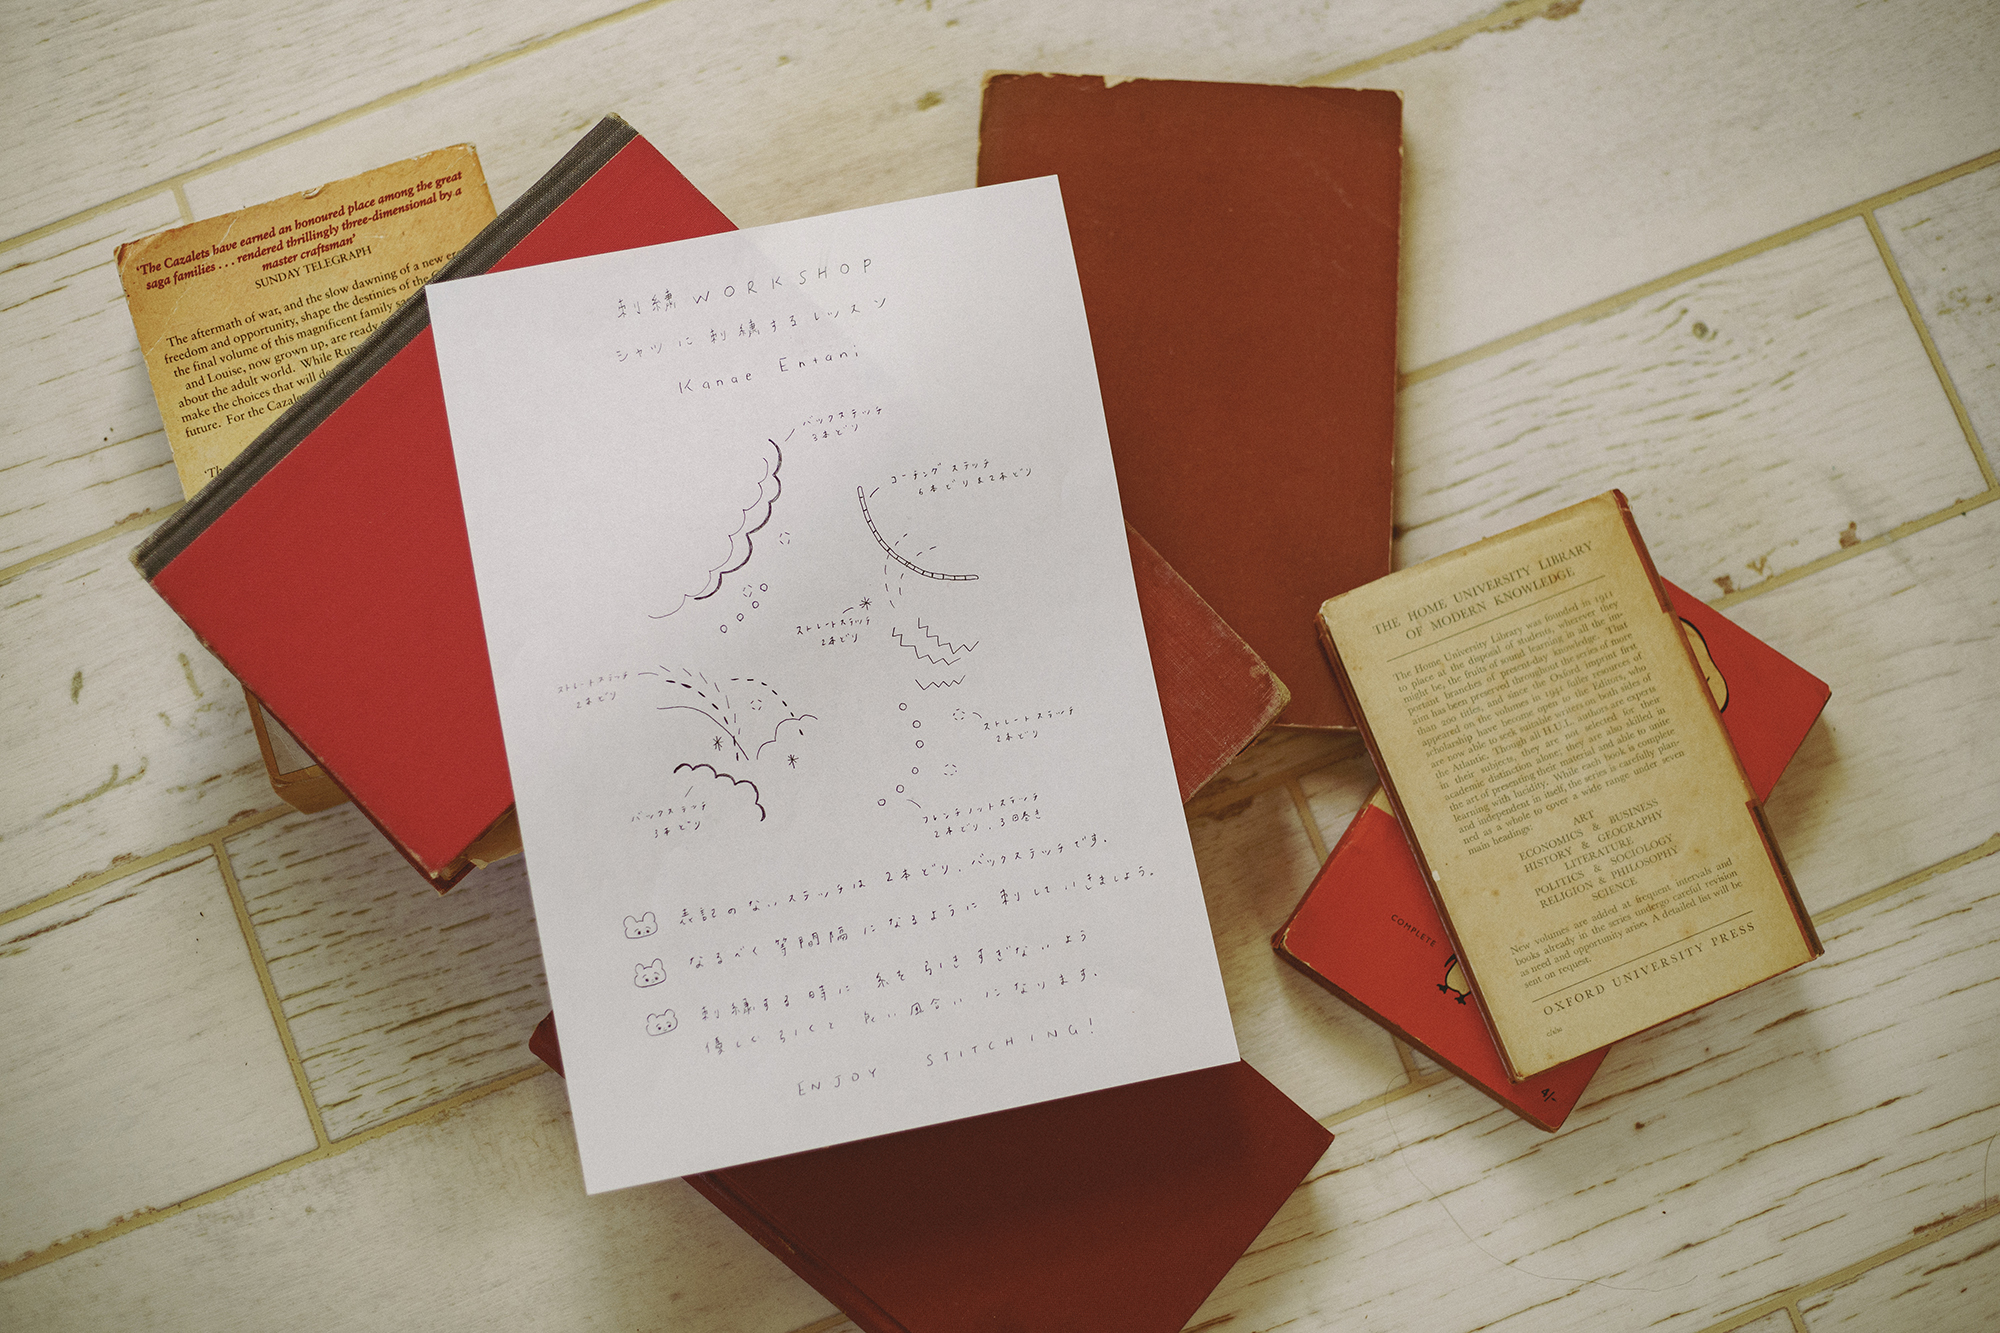 'The Cazalets have earned an honoured place among the great
saga families . . . rendered thrillingly three-dimensional by a
master craftsman'
SUNDAY TELEGRAPH
The aftermath of war, and the slow dawning of a new
freedom and opportunity, shape the destinies of the
the final volume of this magnificent family
and Louise, now grown up, are ready
about the adult world. While
make the choices that will
future. For the
刺繍 WORKSHOP
シャツに刺繍するレッスン
Kanae Entani
バックステッチ
3本どり
コーチングステッチ
6本どり&2本どり
ストレートステッチ
2本どり
ストレートステッチ
2本どり
ストレートステッチ
2本どり
バックステッチ
3本どり
フレンチノットステッチ
2本どり、3回巻き
表記のないステッチは 2本どり、バックステッチです。
なるべく等間隔になるように刺していきましょう。
刺繍する時に 糸を引きすぎないよう
優しく引くと 良い風合いになります。
ENJOY STITCHING!
THE HOME UNIVERSITY LIBRARY
OF MODERN KNOWLEDGE
The Home University Library was founded in 1911
to place at the disposal of students, wherever they
might be, the fruits of sound learning in all the im-
portant branches of present-day knowledge. That
aim has been preserved throughout the series of more
than 200 titles, and since the Oxford imprint first
appeared on the volumes in 1941 fuller resources of
scholarship have become open to the Editors, who
are now able to seek suitable writers on both sides of
the Atlantic. Though all H.U.L. authors are experts
in their subjects, they are not selected for their
academic distinction alone; they are also skilled in
the art of presenting their material and able to unite
learning with lucidity. While each book is complete
and independent in itself, the series is carefully plan-
ned as a whole to cover a wide range under seven
main headings:
ART
ECONOMICS & BUSINESS
HISTORY & GEOGRAPHY
LITERATURE
POLITICS & SOCIOLOGY
RELIGION & PHILOSOPHY
SCIENCE
New volumes are added at frequent intervals and
books already in the series undergo careful revision
as need and opportunity arise. A detailed list will be
sent on request.
OXFORD UNIVERSITY PRESS
COMPLETE